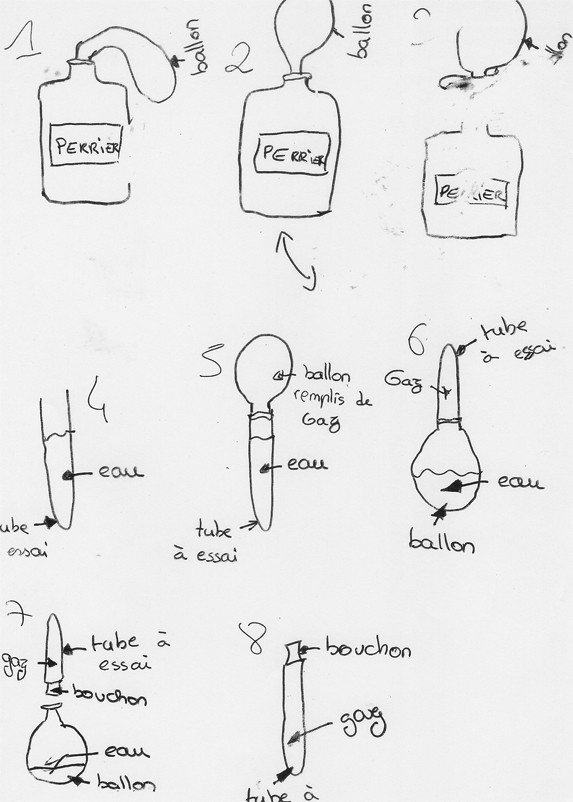 1
ballon
PERRIER
2
ballon
PERRIER
PERRIER
4
eau
ube
essai
5
ballon
remplis de
Gaz
eau
tube
à essai
6
tube
à essai
Gaz
eau
ballon
7
gaz
tube à
essai
bouchon
eau
ballon
8
bouchon
gaz
tube à